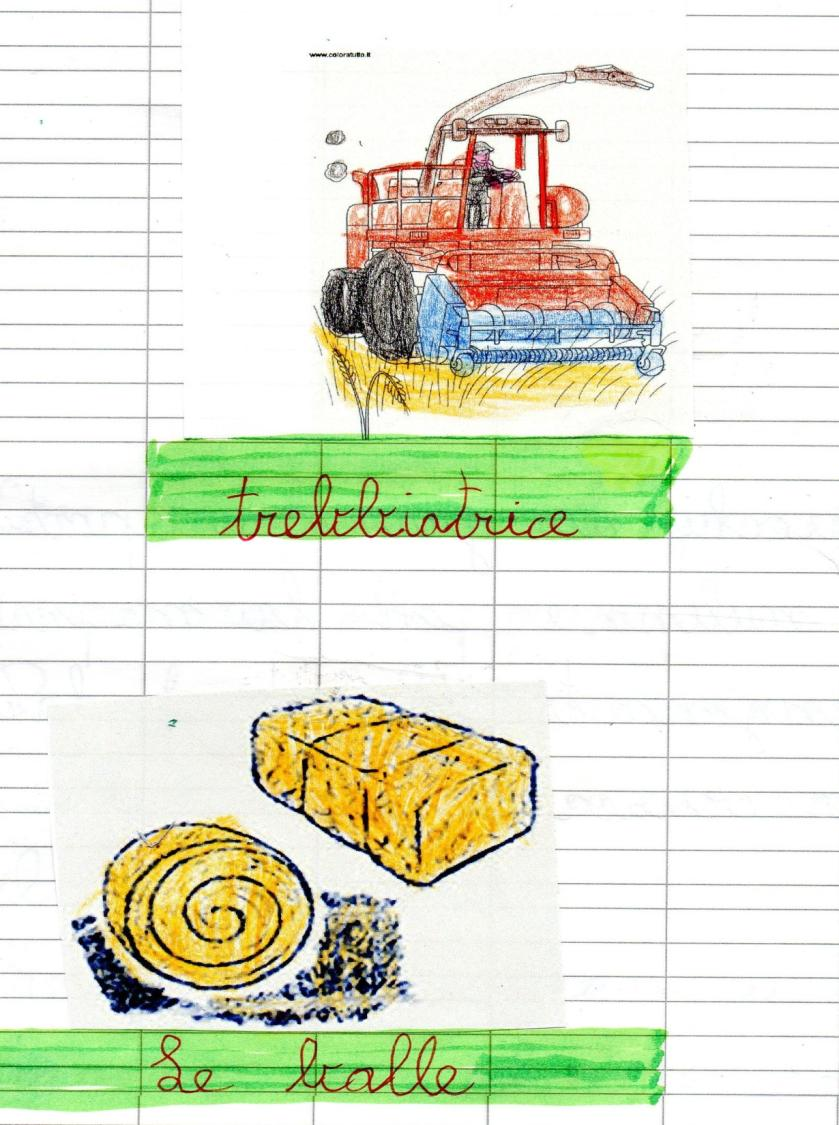 www.coloratutto.it
trebbiatrice
Le balle